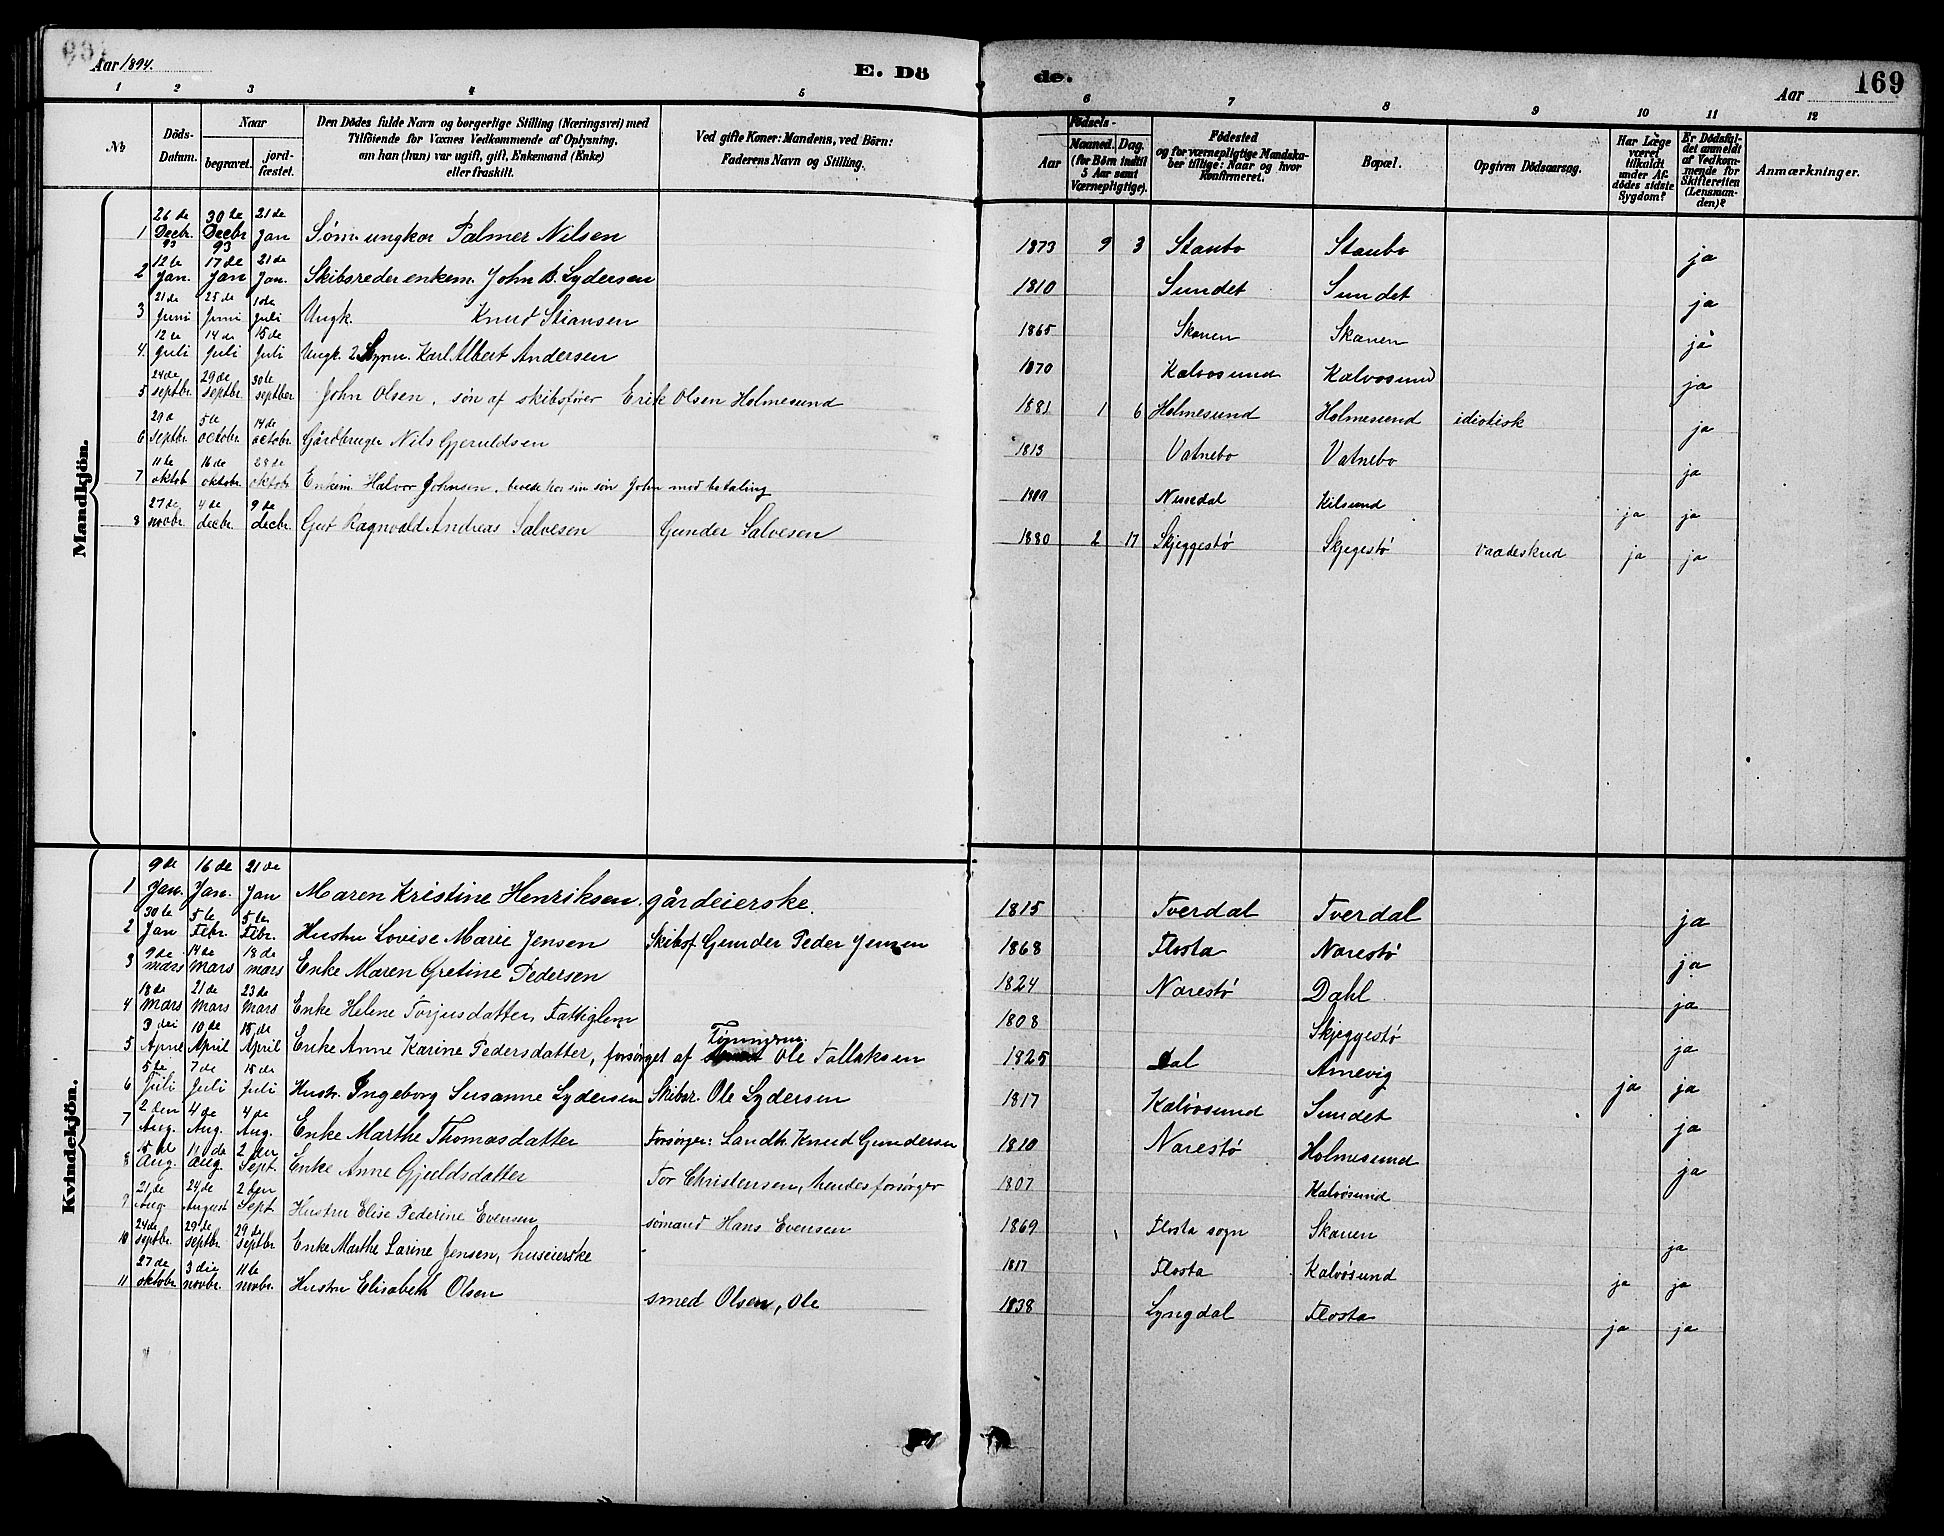 Aar 1894. E. Dö de. Aar 169
1 2 3 4 5 6 7 8 9 10 11 12
No Döds-Datum. Naar begravet. jord-fæstet. Den Dödes fulde Navn og borgerlige Stilling (Næringsvei) med Tilföiende for Voxnes Vedkommende af Oplysning, om han (hun) var ugift, gift, Enkemand (Enke) eller fraskilt. Ved gifte Koner: Mandens, ved Börn: Faderens Navn og Stilling. Födsels- Aar Maaned. Dag. (for Börn indtil 5 Aar samt Værnepligtige). Födested og for værnepligtige Mandskaber tillige: Naar og hvor Konfirmeret. Bopæl. Opgiven Dödsaarsag. Har Læge været tilkaldt under Afdödes sidste Sygdom? Er Dödsfaldet anmeldt af Vedkommende for Skifteretten (Lensmanden)? Anmærkninger.
Mandkjön.
1 26de Decbr. 93 30te Decbr 93 21de Jan Søm. ungkar Palmer Nilsen 1873 9 3 Staubo Staubo ja
2 12te Jan. 17de Jan 21de Jan. Skibsreder enkem. John B. Lydersen 1810 Sundet Sundet ja
3 21de Juni 25de Juni 1ste Juli Ungk. Knud Stiansen 1865 Skanen Skanen ja
4. 12te Juli 14de Juli 15de Juli Ungk. Karl Albert Andersen 1870 Kalvøsund Kalvøsund ja
5 24de septbr. 29de septbr. 30te septber John Olsen, søn af skibsfører Erik Olsen Holmesund 1881 1 6 Holmesund Holmesund idiotisk ja
6 29de septbr. 5te octobr. 14de octobr. Gårdbruger Nils Gjeruldsen 1813 Vatnebo Vatnebo ja
7 11te oktob 16de oktobr. 28de oktobr Enkem. Halvor Johnsen, boede hos sin søn John mod betaling Kilsund ja ja
8 27de novbr. 4de decbr. 9de decbr. Gut Ragnvald Andreas Salvesen Gunder Salvesen 1880 2 17 Skjeggestø Skjegestø Vaadeskud ja ja
Kvindekjön.
1 9de Jan. 16de Jan. 21de Jan Maren Kristine Henriksen. gårdeierske. 1815 Tverdal Tverdal ja
2 30te Jan 5te Febr. 5te Febr. Hustru Lovise Marie Jensen Skibsf. Gunder Peder Jensen 1868 Flosta Narestø ja
3 9de mars 14de Mars 18de mars Enke Maren Gretine Pedersen 1824 Narestø Dahl ja
4 18de Mars 21de Mars 23de Mars Enke Helene Torjusdatter, Fattiglem 1808 Skjeggestø ja
5 3die April 10de April 15de April Enke Anne Karine Pedersdatter, forsørget af Tømmerm. Ole Tallaksen 1825 Dal Arnevig ja ja
6 5te Juli 7de Juli 15de Juli Hustr. Ingeborg Susanne Lydersen Skibsr. Ole Lydersen 1817 Kalvøsund Sundet ja
7 2den Aug. 4de Aug. 4de Aug. Enke Marthe Thomasdatter Forsørger: Landh. Knud Gundersen 1810 Narestø Holmesund ja
8 Aug. 11de Aug. 2den Sept. Enke Anne Gjuldsdatter Tor Christensen, hendes forsørger 1807 Kalvøsund
9 21de Aug. 24de August 2den Sept Hustru Elise Pederine Evensen sømand Hans Evensen 1869 Flosta sogn Skanen ja
10 24de septbr. 29de septbr 29de septbr Enke Marthe Larine Jensen, huseierske 1817 Flosta Kalvøsund ja ja
11 27de oktobr 3die novbr. 11te novbr. Hustru Elisabeth Olsen smed Olsen, Ole 1838 Lyngdal Flosta ja ja